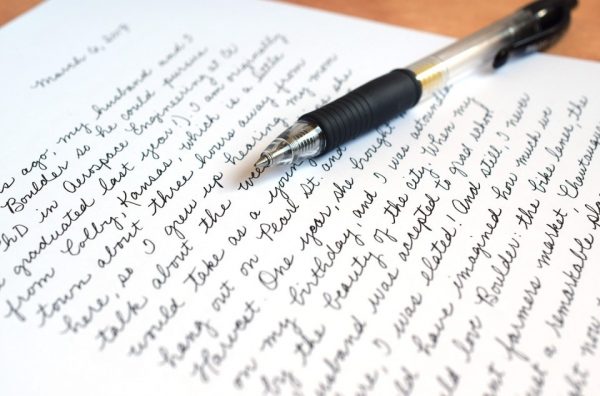 March 6, 2013
s ago. my husband and I
Boulder so he could pursue
PhD in Aerospace Engineering at C
graduated last year!) I am originally
from Colby, Kansas, which is a little
town about three hours away from
here, so I grew up hearing my mom
talk about the
would take as a young
hang out on Pearl St. and
Harvest. One year, she brought m
on my birthday, and I was astounde
by the beauty of the city. When my
husband was accepted to grad school
I was elated! And still, I never
have imagined how much we
love Boulder: the bike lanes, the
farmers market, Chautauqua
a remarkable pla
now